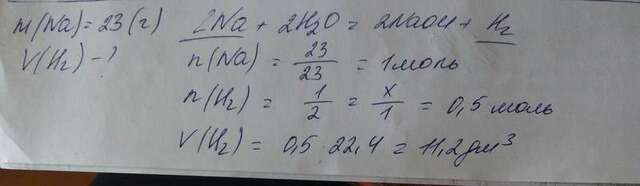 m(Na)=23(г) 2Na + 2H₂O = 2NaOH + H₂
V(H₂) - ? n(Na) = 23/23 = 1 моль
n(H₂) = 1/2 = x/1 = 0,5 моль
V(H₂) = 0,5 · 22,4 = 11,2 дм³